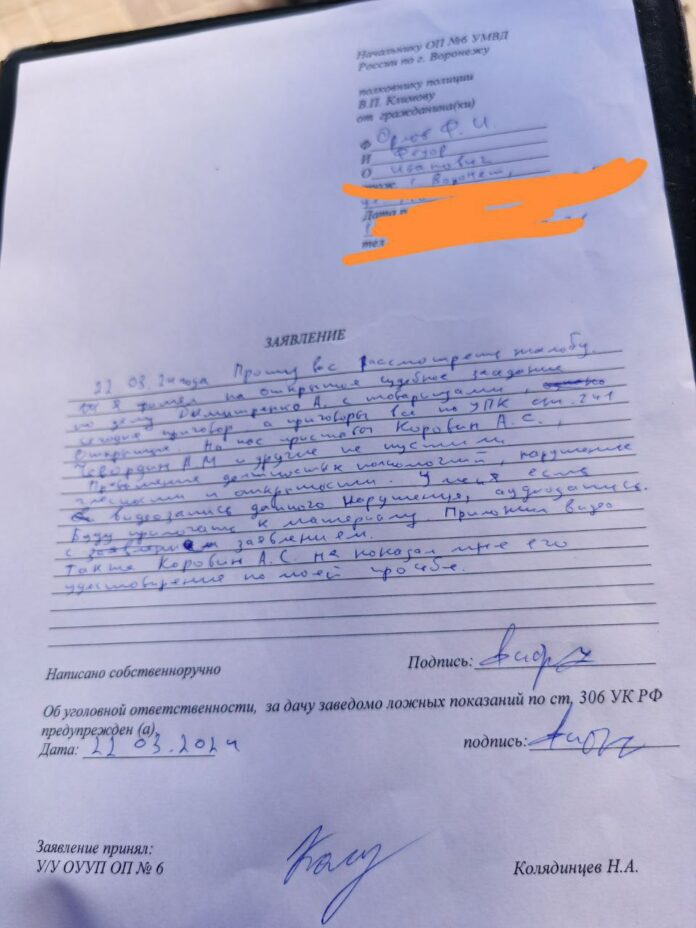 Начальнику ОП №6 УМВД
России по г. Воронежу
полковнику полиции
В.П. Климову
от гражданина(ки)
Ф Орлов Ф. И.
И Федор
О Иванович
г. Воронеж,
Дата
тел
ЗАЯВЛЕНИЕ
22 03. 24 года Прошу вас рассмотреть жалобу.
я пришел на открытое судебное заседание
по делу Дмитренко А. с товарищами,
сегодня приговор а приговоры все по УПК ст. 241
Открытые. На нас пристав Коровин А. С.,
А М и другие не пустили
Превышение должностных полномочий, нарушение
гласности и открытости. У меня есть
видеозапись данного нарушения, аудиозапись.
Буду прилагать к материалу. Приложил видео
с заявлением.
Также Коровин А.С. не показал мне его
удостоверение по моей просьбе.
Написано собственноручно
Подпись:
Об уголовной ответственности, за дачу заведомо ложных показаний по ст, 306 УК РФ
предупрежден (а)
Дата: 22 03. 2024
подпись:
Заявление принял:
У/У ОУУП ОП № 6
Колядинцев Н.А.